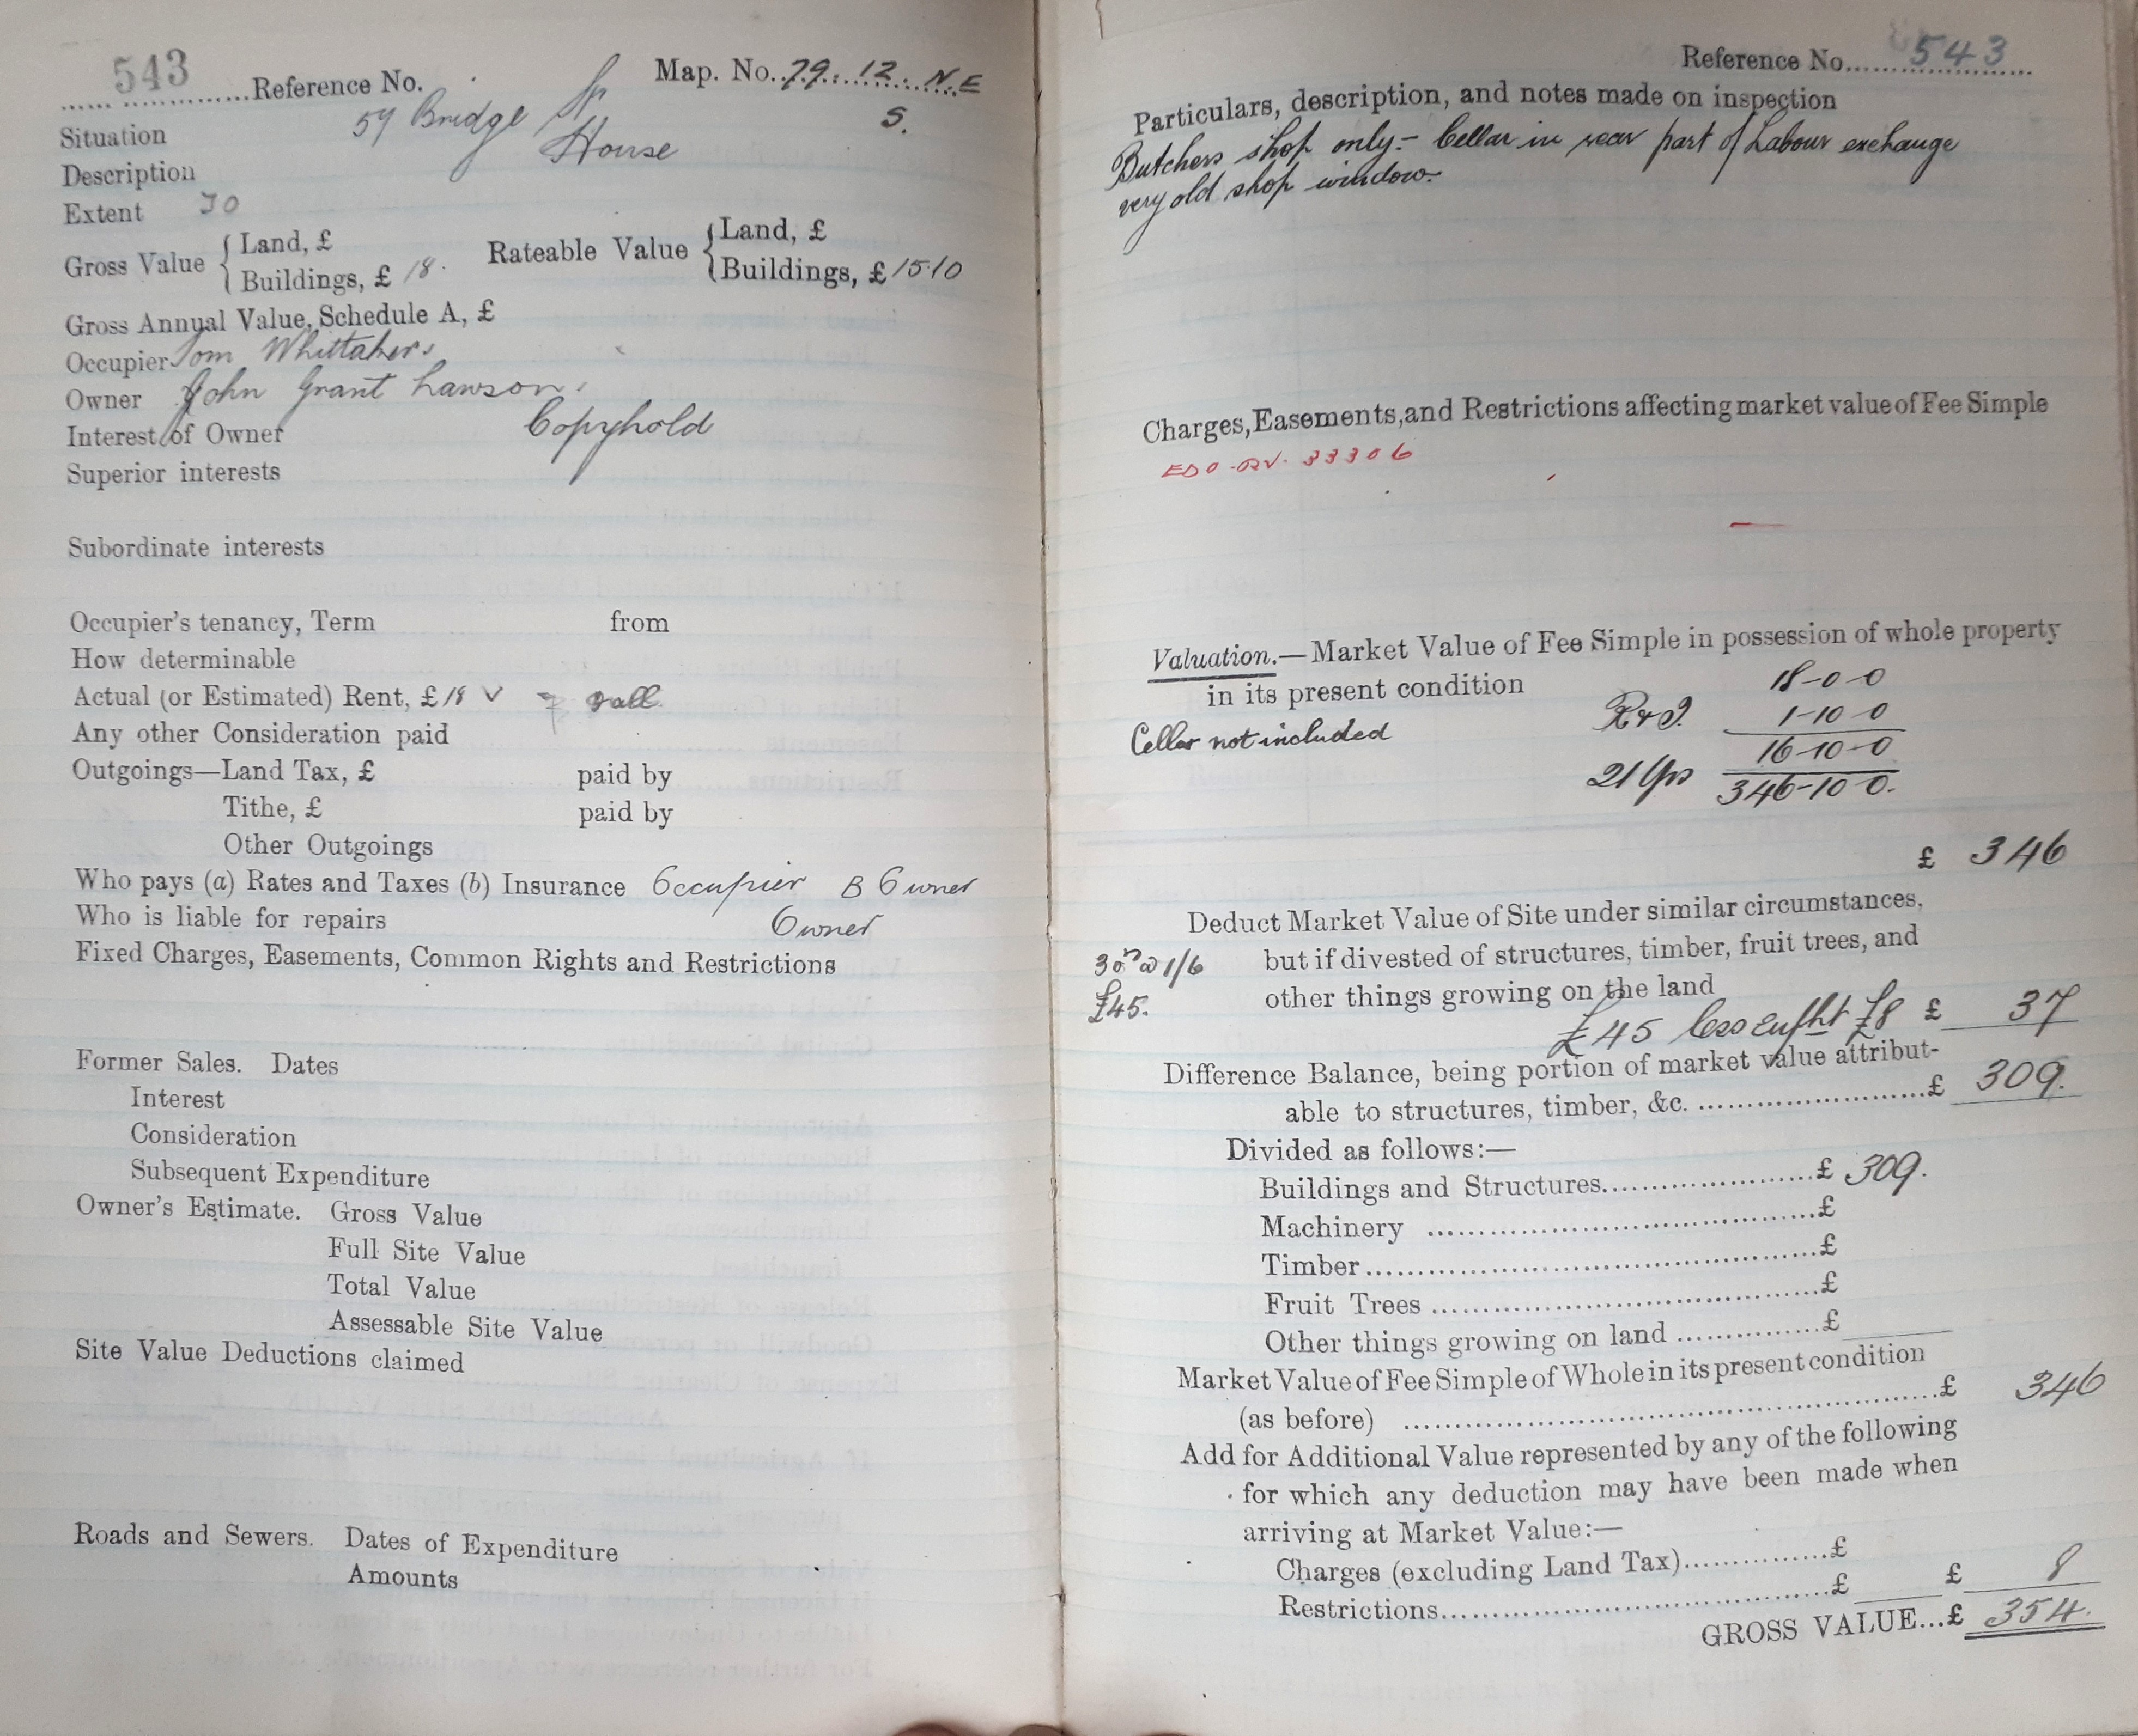 543 Reference No. Map. No. 79. 12. N.E
S.
Situation 59 Bridge St
Description House
Extent 30
Gross Value { Land, £ Rateable Value { Land, £
Buildings, £ 18. Buildings, £ 15.10
Gross Annual Value, Schedule A, £
Occupier Tom Whittakers
Owner John Grant Lawson.
Interest of Owner Copyhold
Superior interests
Subordinate interests
Occupier's tenancy, Term from
How determinable
Actual (or Estimated) Rent, £ 18
Any other Consideration paid
Outgoings—Land Tax, £ paid by
Tithe, £ paid by
Other Outgoings
Who pays (a) Rates and Taxes (b) Insurance Occupier B Owner
Who is liable for repairs Owner
Fixed Charges, Easements, Common Rights and Restrictions
Former Sales. Dates
Interest
Consideration
Subsequent Expenditure
Owner's Estimate. Gross Value
Full Site Value
Total Value
Assessable Site Value
Site Value Deductions claimed
Roads and Sewers. Dates of Expenditure
Amounts
Reference No. 543
Particulars, description, and notes made on inspection
Butchers shop only:- Cellar in rear part of Labour exchange
very old shop window.
Charges, Easements, and Restrictions affecting market value of Fee Simple
33306
Valuation.—Market Value of Fee Simple in possession of whole property
in its present condition 18-0-0
R & I. 1-10-0
Cellar not included
16-10-0
21 Yrs 346-10 0.
£ 346
Deduct Market Value of Site under similar circumstances,
but if divested of structures, timber, fruit trees, and
30 @ 1/6
other things growing on the land
£45.
£45 less £8 £ 37
Difference Balance, being portion of market value attribut-
able to structures, timber, &c. £ 309.
Divided as follows:—
Buildings and Structures £ 309.
Machinery £
Timber £
Fruit Trees £
Other things growing on land £
Market Value of Fee Simple of Whole in its present condition
(as before) £ 346
Add for Additional Value represented by any of the following
for which any deduction may have been made when
arriving at Market Value:—
Charges (excluding Land Tax) £
Restrictions £ £ 8
GROSS VALUE... £ 354.